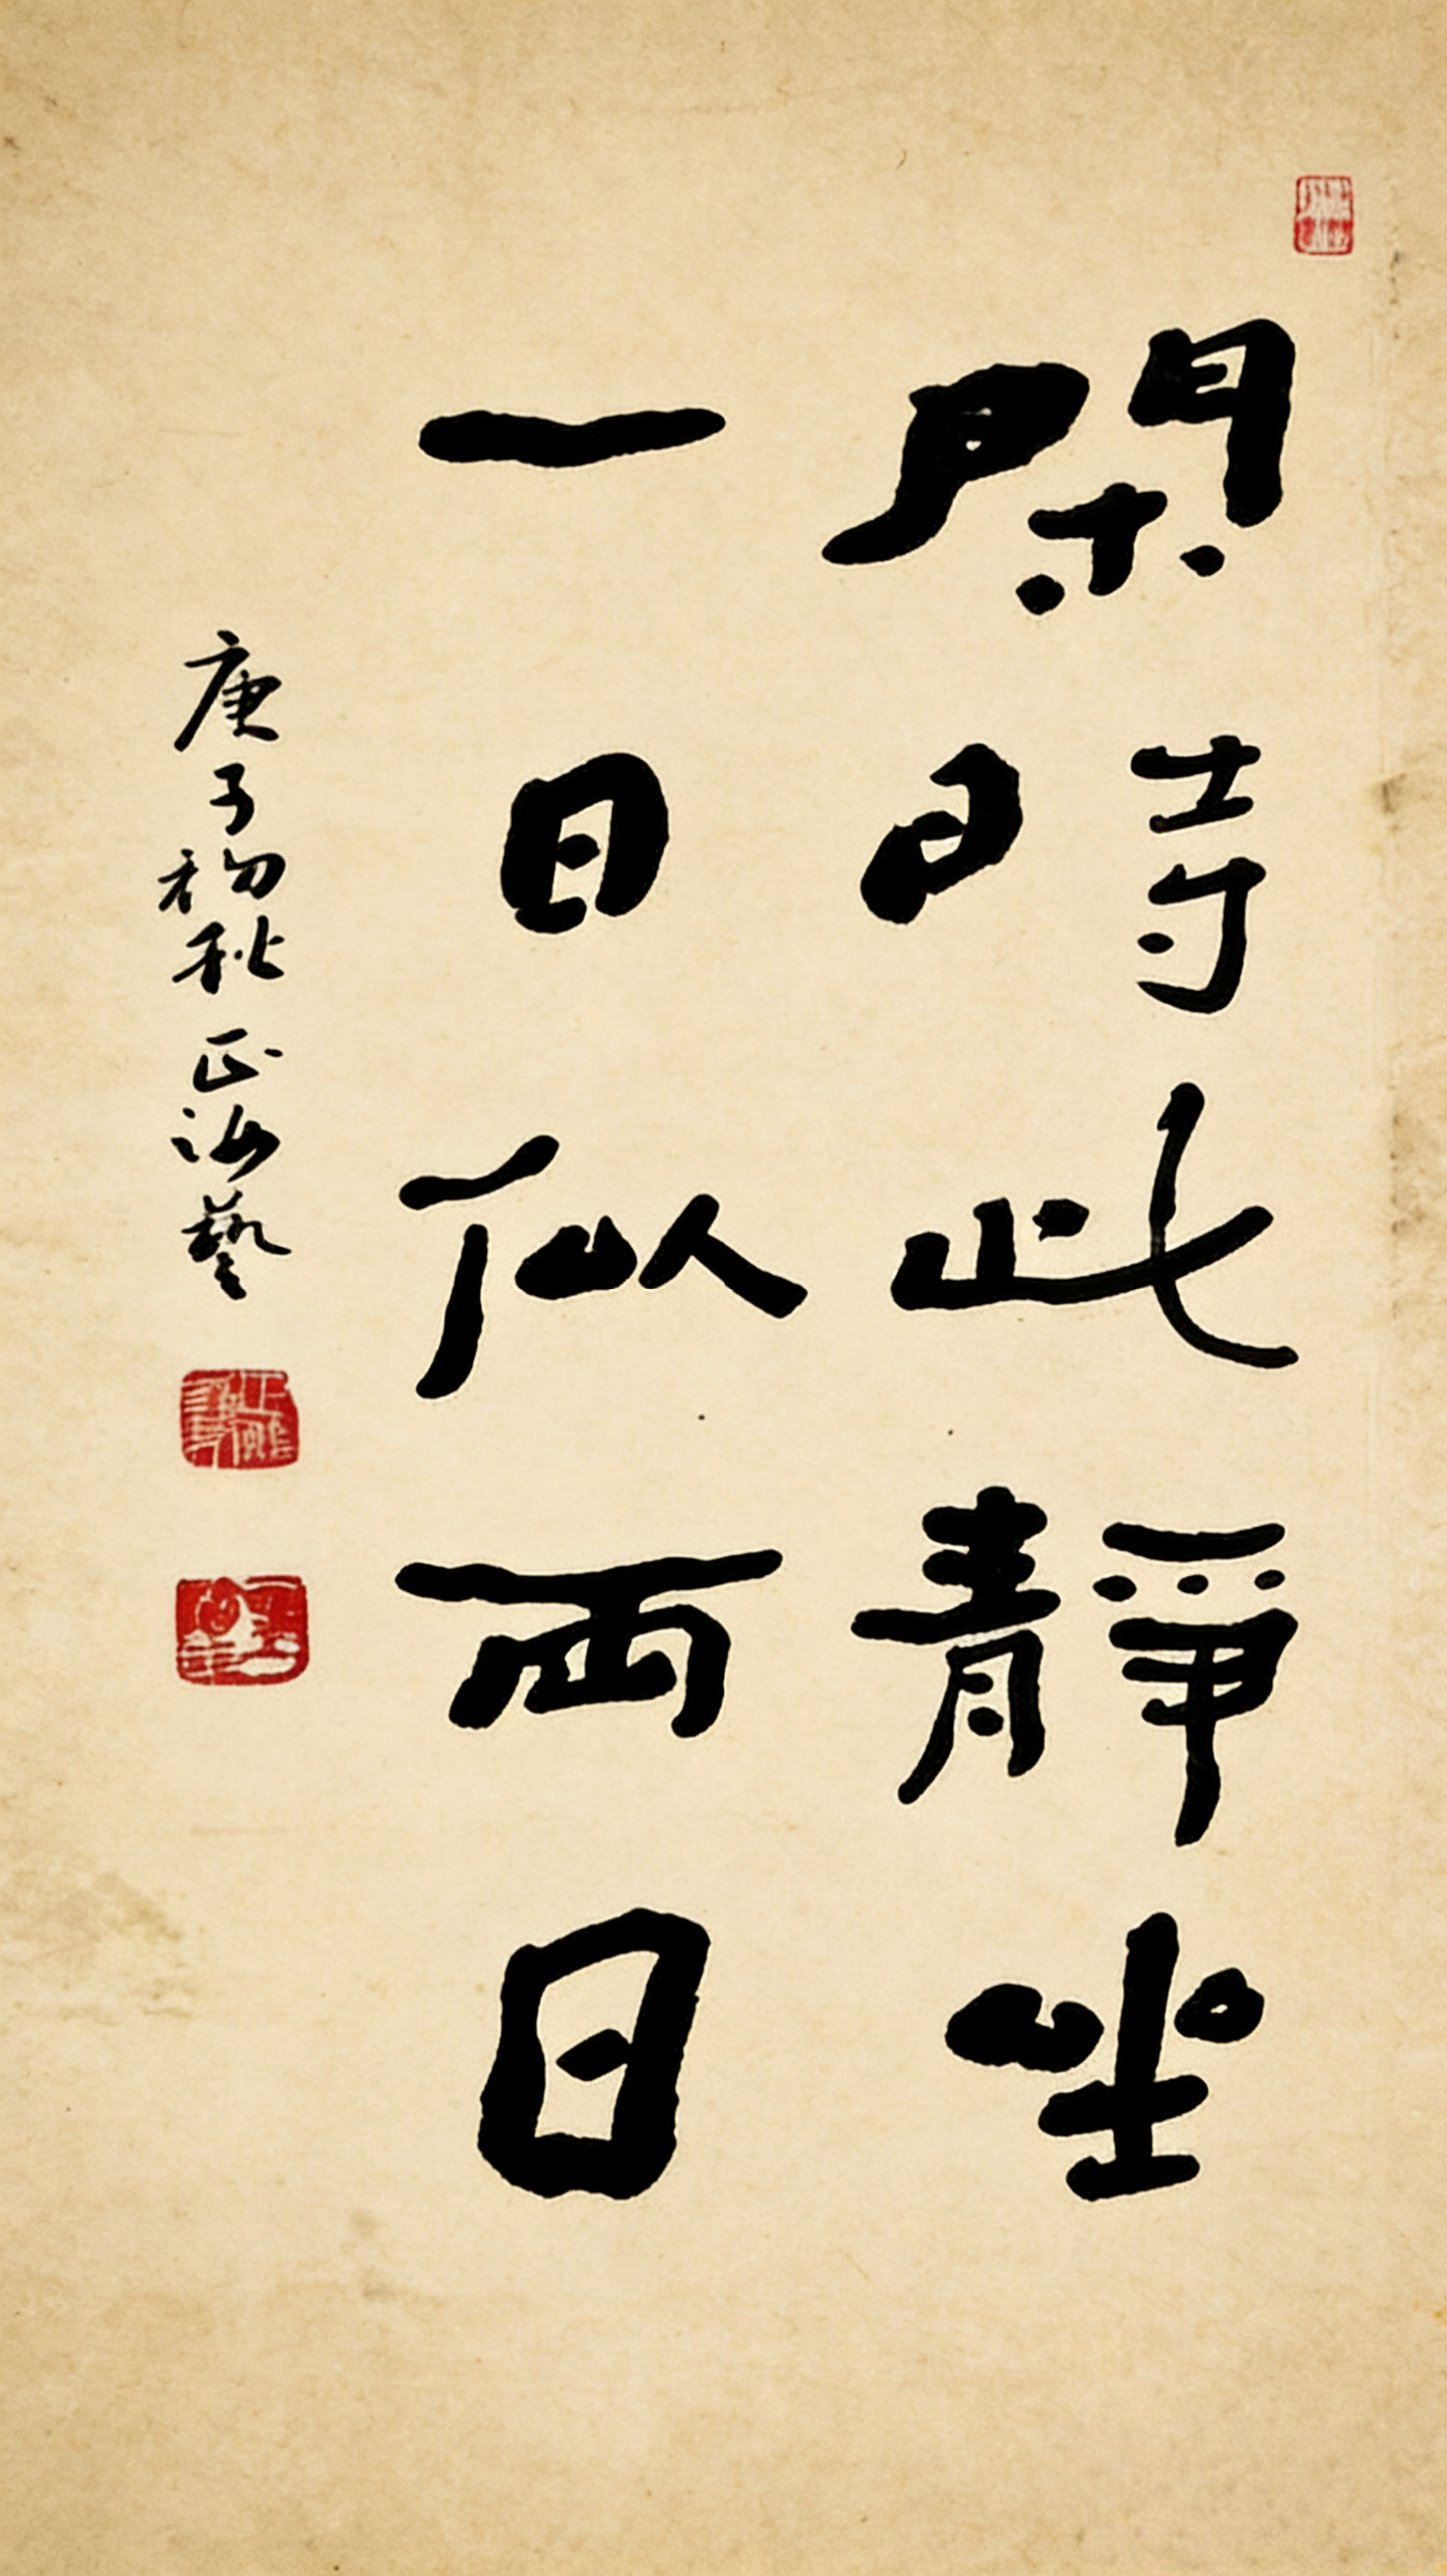 閑時此靜坐
一日似兩日
庚子初秋正海藝